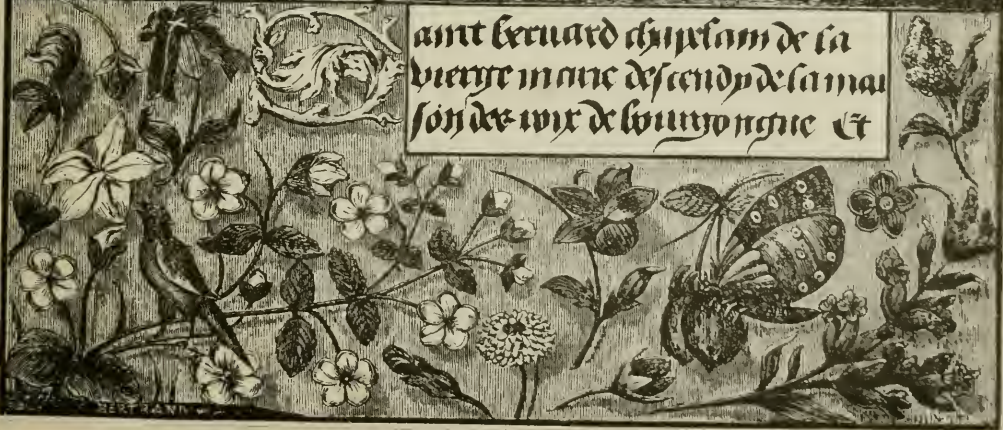 Saint bernard chapelain de la
vierge marie descendy de la mai
son des roix de bourgongne Et